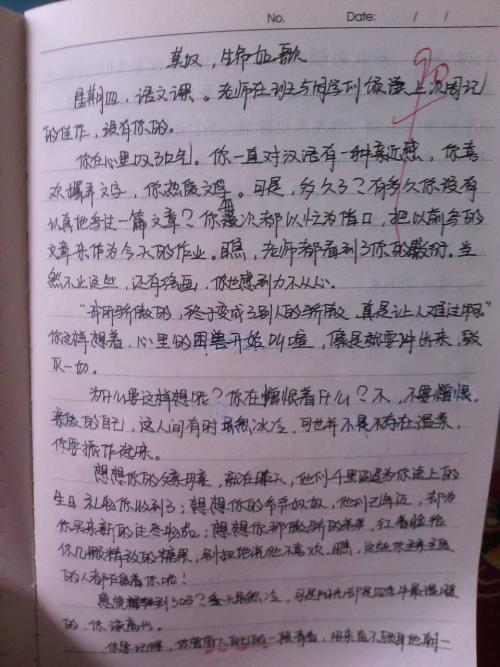 No. Date: / /
莫叹,生命如歌
90
星期四,语文课。老师在班上与同学们 上次周记
的佳作,没有你的。
你在心里叹了口气。你一直对汉语有一种亲近感,你喜
欢摆弄文字,你热爱文学。可是,多久了?有多久你没有
认真地写过一篇文章?你每次都以忙为借口,把以前写的
文章来作为今天的作业。瞧,老师都看到了你的敷衍。当
然不止这些,还有绘画,你也感到力不从心。
"我所骄傲的,终于变成了别人的骄傲,真是让人难过啊。"
你这样想着,心里的困兽开始叫喧,像是就要冲出来,毁
灭一切。
为什么要这样想呢?你在憎恨着什么?不,不要憎恨
的自己,这人间有时虽然冰冷,可也并不是不存在温柔,
你要振作起来。
想想你的父亲母亲,就在昨天,他们千里迢迢为你送上的
生日礼物你收到了;想想你的爷爷奶奶,他们已年迈,却为
你买来新的生活物品;想想你那 的弟弟,红着脸给
你几颗精致的糖果,别扭地说他不喜欢。瞧,这些你
的人都在 着你呢!
感觉 到了吗?冬天虽然冷,可是阳光却是四季中最温暖
的,你该高兴。
你要记得,你